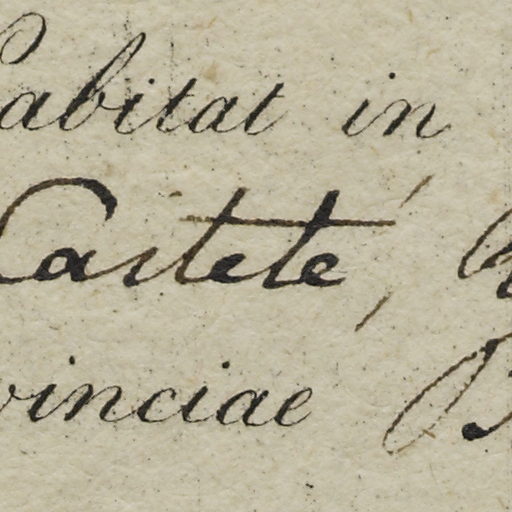 Habitat in
Casteté,
vinciae